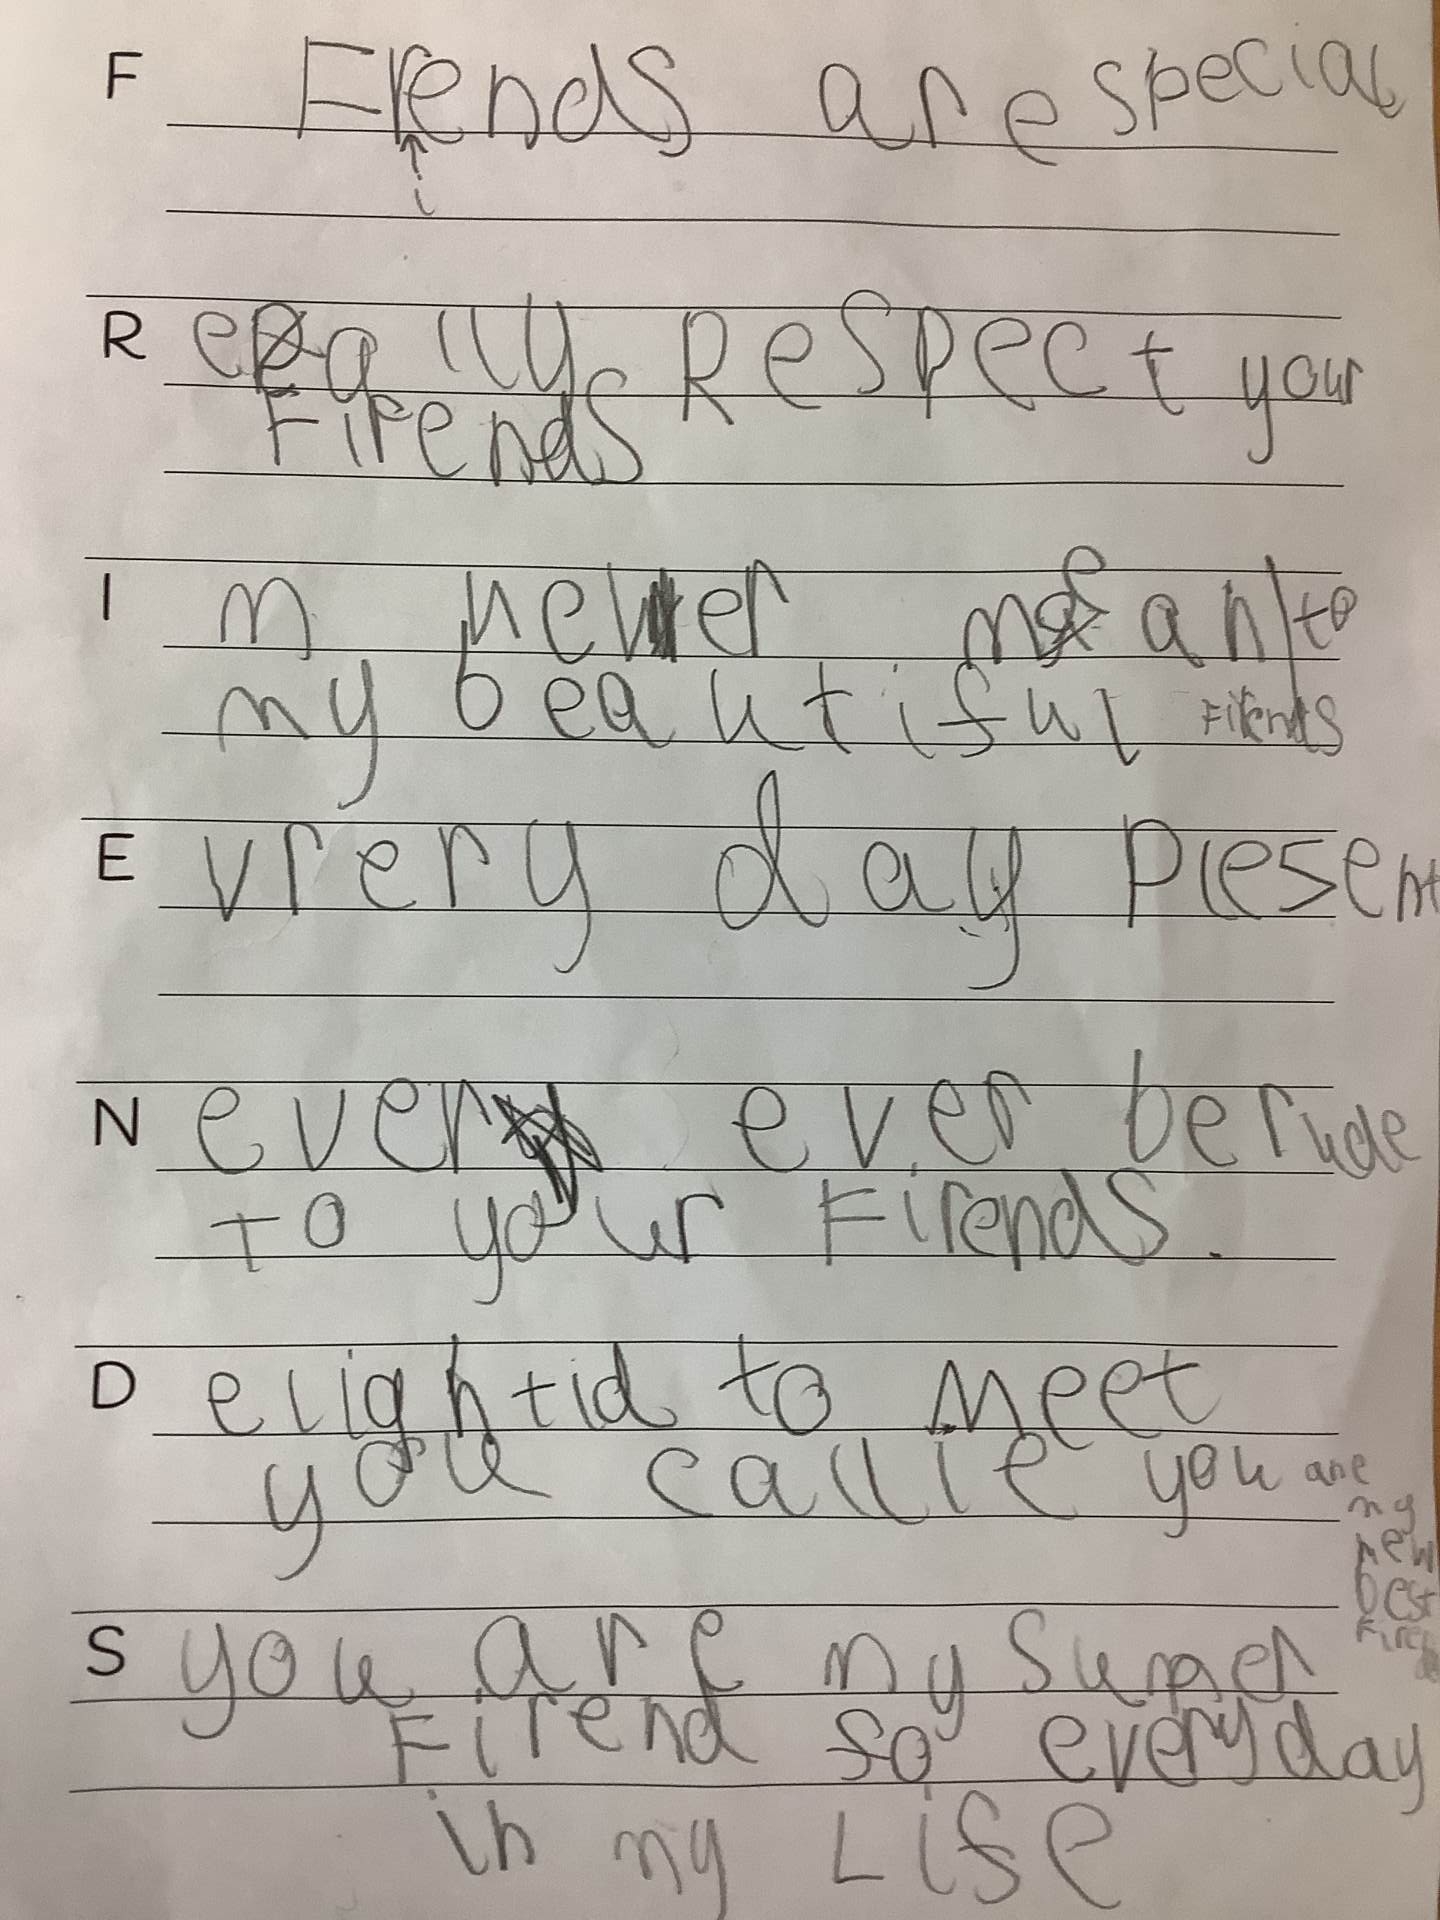 F Frends are special
i
R eally Respect your
Firends
I m never mean to
my beautiful Firends
E vrery day Present
N ever ever be rude
to your Firends.
D elightid to Meet
you callie you are
my
new
best
S you are my super
Firend fo everyday
in my Life